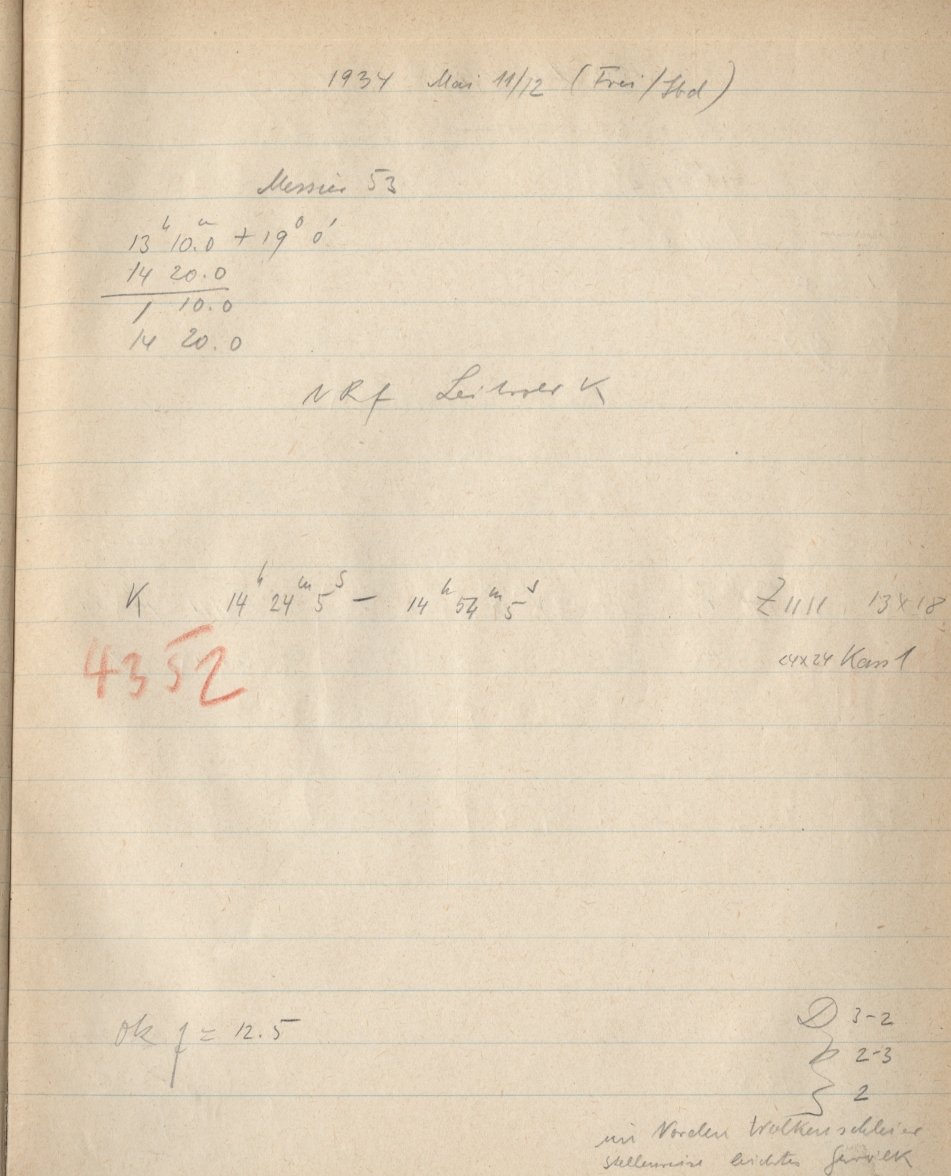 1934 Mai 11/12 (Frei/Sbd)
Messier 53
13ʰ 10.ᵐ0 + 19° 0'
14 20.0
1 10.0
14 20.0
NRf Leitrohr K
K 14ʰ 24ᵐ 5ˢ – 14ʰ 54ᵐ 5ˢ Z 13x18
4352
24x24 Kass 1
Ok f = 12.5
D 3-2
2-3
2
im Norden Wolkenschleier
stellenweise leichtes Gewölk